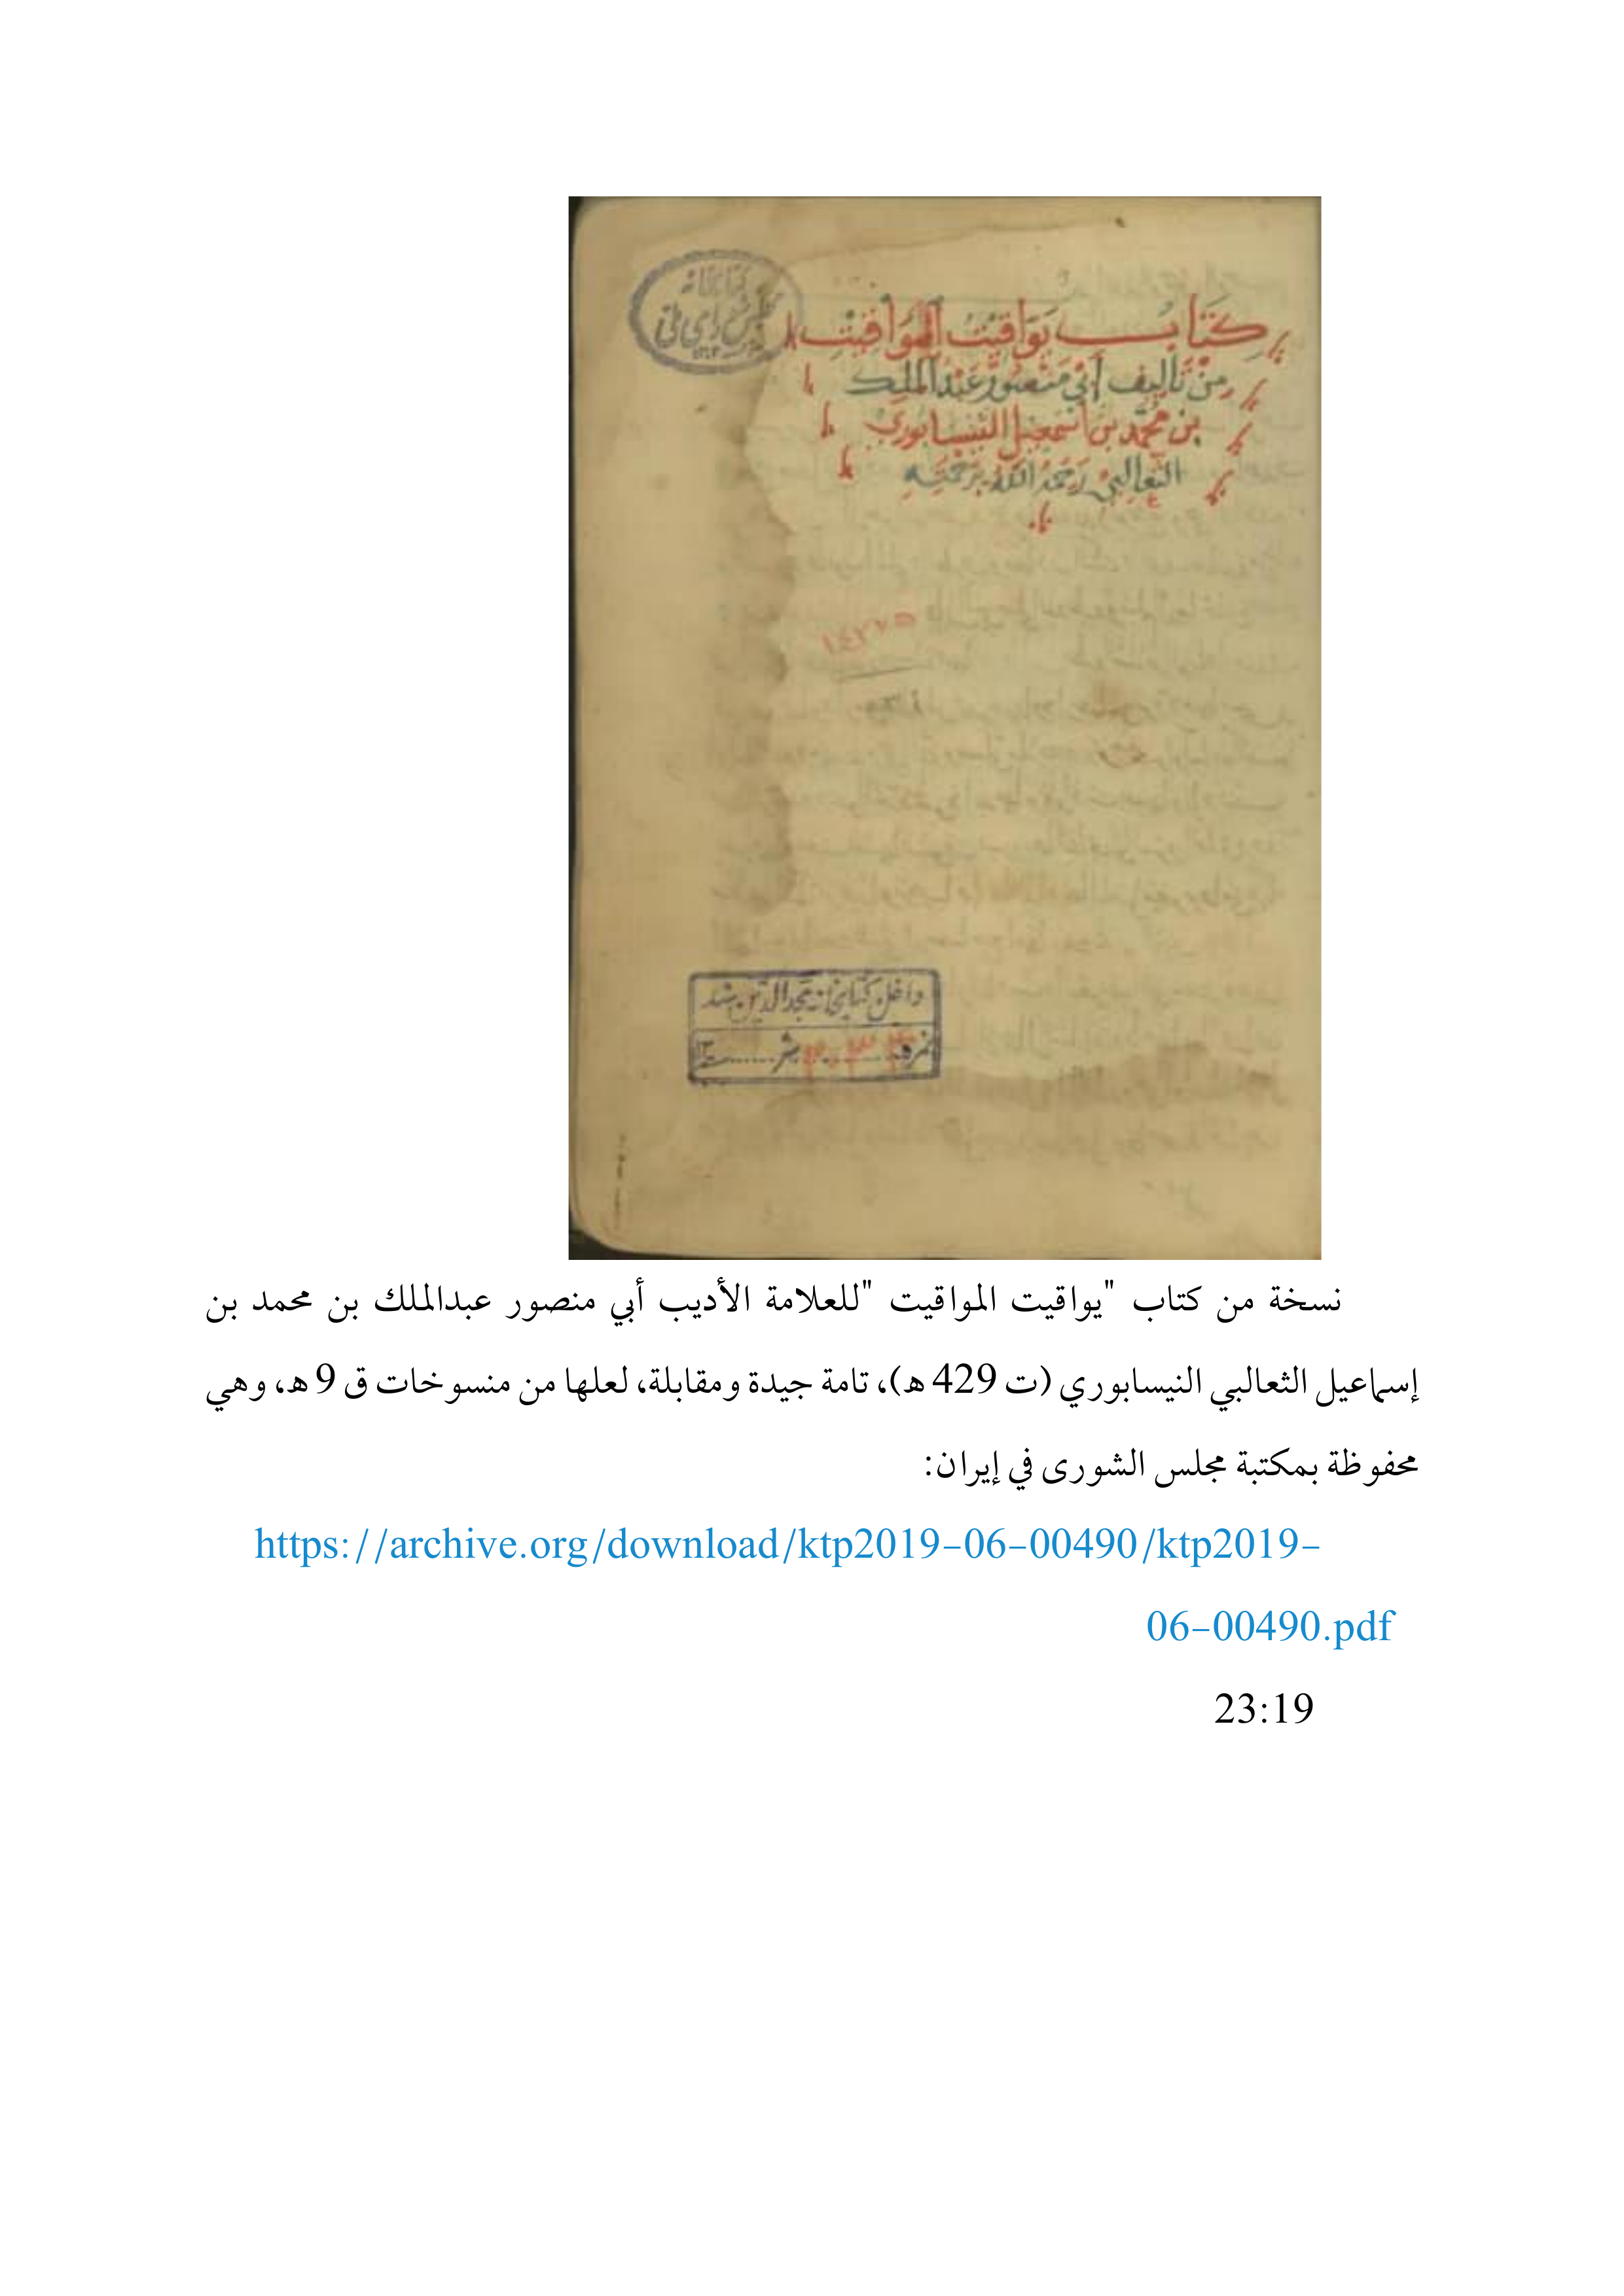 كتابخانه
مجلس شورای ملی
كِتَابُ يَوَاقِيْتُ المَوَاقِيْتِ
مِنْ تَأليف أبي مَنصُور عَبْد الملك
بن مُحَمَّد بن اسمعيل النيسابوري
الثعالبي رَحمَهُ اللهُ بِرَحْمَتِه
١٤٢٧٥
داخل کتابخانه مجدالدین شد
نمره
نسخة من كتاب "يواقيت المواقيت "للعلامة الأديب أبي منصور عبدالملك بن محمد بن
إسماعيل الثعالبي النيسابوري (ت 429 هـ)، تامة جيدة ومقابلة، لعلها من منسوخات ق 9 هـ، وهي
محفوظة بمكتبة مجلس الشورى في إيران:
https://archive.org/download/ktp2019-06-00490/ktp2019-
06-00490.pdf
23:19